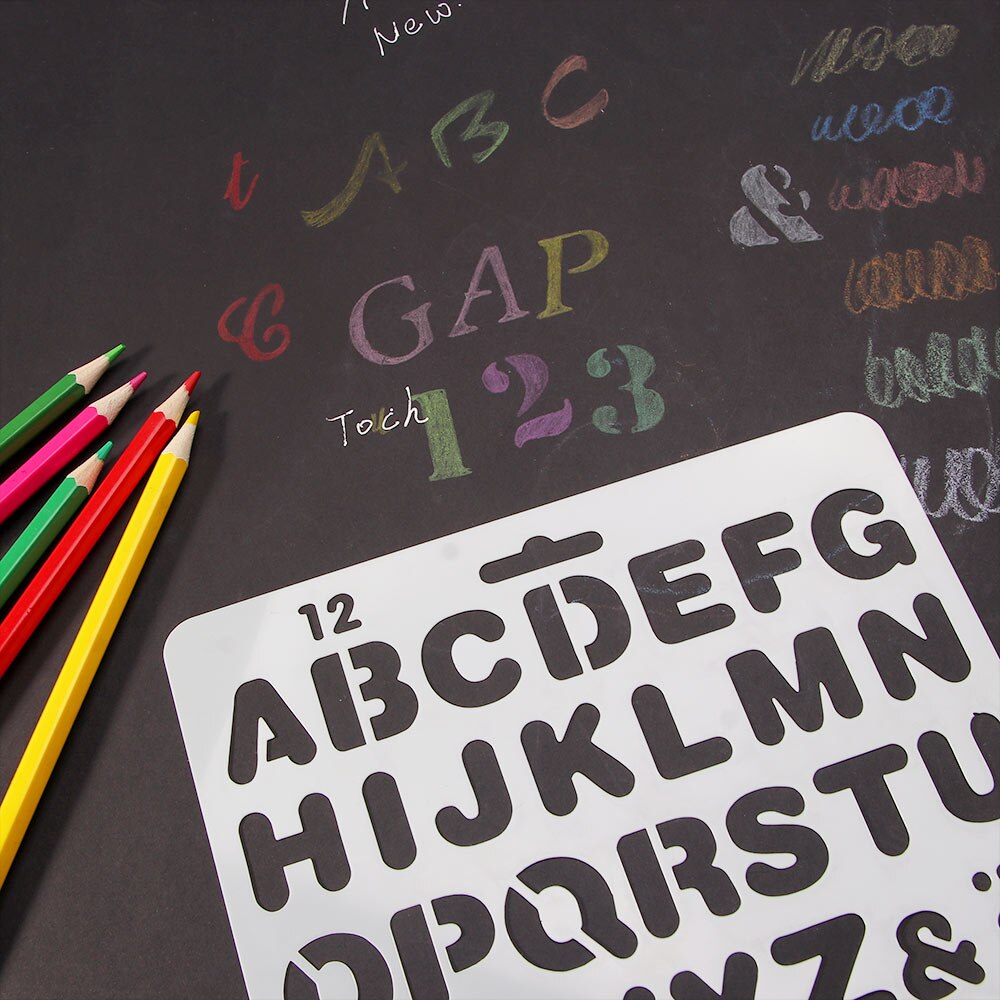 New.
A B C
t
&
GAP
C
123
Toch
12
ABCDEFG
HIJKLMN
OPQRSTU
YZ&